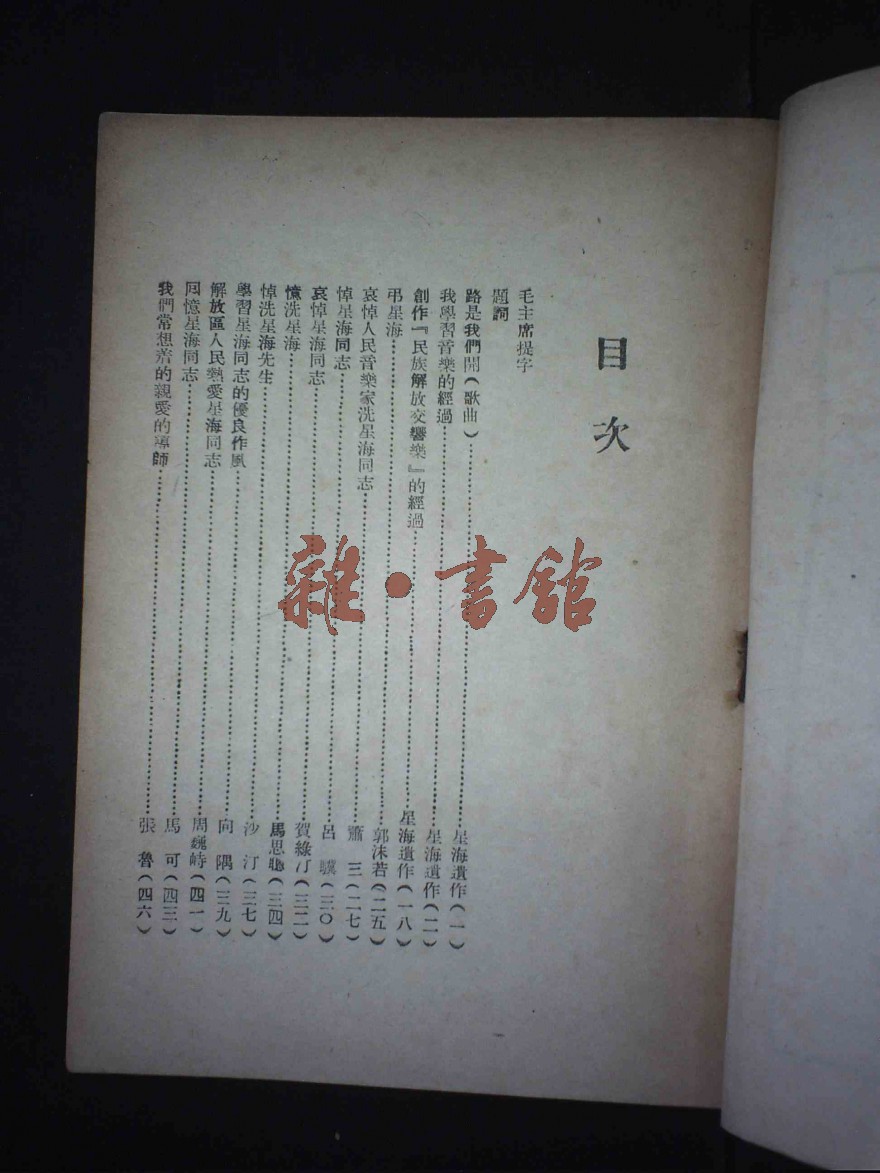 目次
毛主席提字
題詞
路是我們開(歌曲)……星海遺作(一)
我學習音樂的經過……星海遺作(二)
創作『民族解放交響樂』的經過……星海遺作(一八)
弔星海……郭沫若(二五)
哀悼人民音樂家洗星海同志……蕭三(二七)
悼星海同志……呂驥(三〇)
哀悼星海同志……賀綠汀(三二)
憶洗星海……馬思聰(三四)
悼洗星海先生……沙汀(三七)
學習星海同志的優良作風……向隅(三九)
解放區人民熱愛星海同志……周巍峙(四一)
回憶星海同志……馬可(四三)
我們常想着的親愛的導師……張魯(四六)
雜·書館